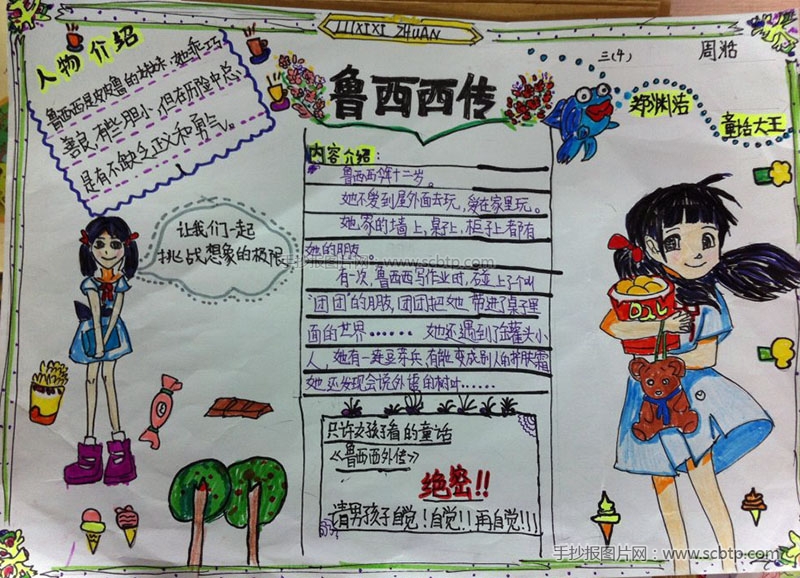 LUXIXI ZHUAN
三(4) 周浩
人物介绍
鲁西西是皮皮鲁的妹妹,她乖巧
善良,有些胆小,但在历险中总
是有不缺乏正义和勇气。
鲁西西传
郑渊洁
童话大王
让我们一起
挑战想象的极限
内容介绍:
鲁西西,年十二岁。
她不爱到屋外面去玩,爱在家里玩。
她家的墙上,桌子上,柜子上都有
她的朋友。
有一次,鲁西西写作业时,碰上了个叫
“团团”的朋友,团团把她带进了桌子里
面的世界……她还遇到了罐头小
人,她有一连豆芽兵,有能变成别人的护肤霜
她还发现会说外语的树叶……
只许女孩子看的童话
《鲁西西外传》
绝密!!
请男孩子自觉!自觉!!再自觉!!!
手抄报图片网 - www.scbtp.com
手抄报图片网:www.scbtp.com